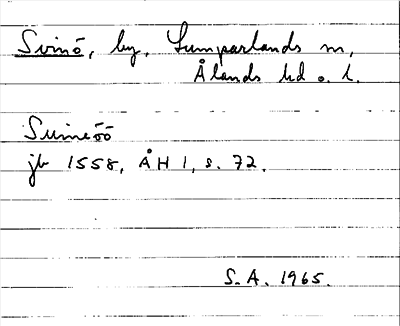 Svinö, by, Lumparlands sn,
Ålands hd o. l.
Suineöö
jb 1558, ÅH 1, s. 72.
S.A. 1965.